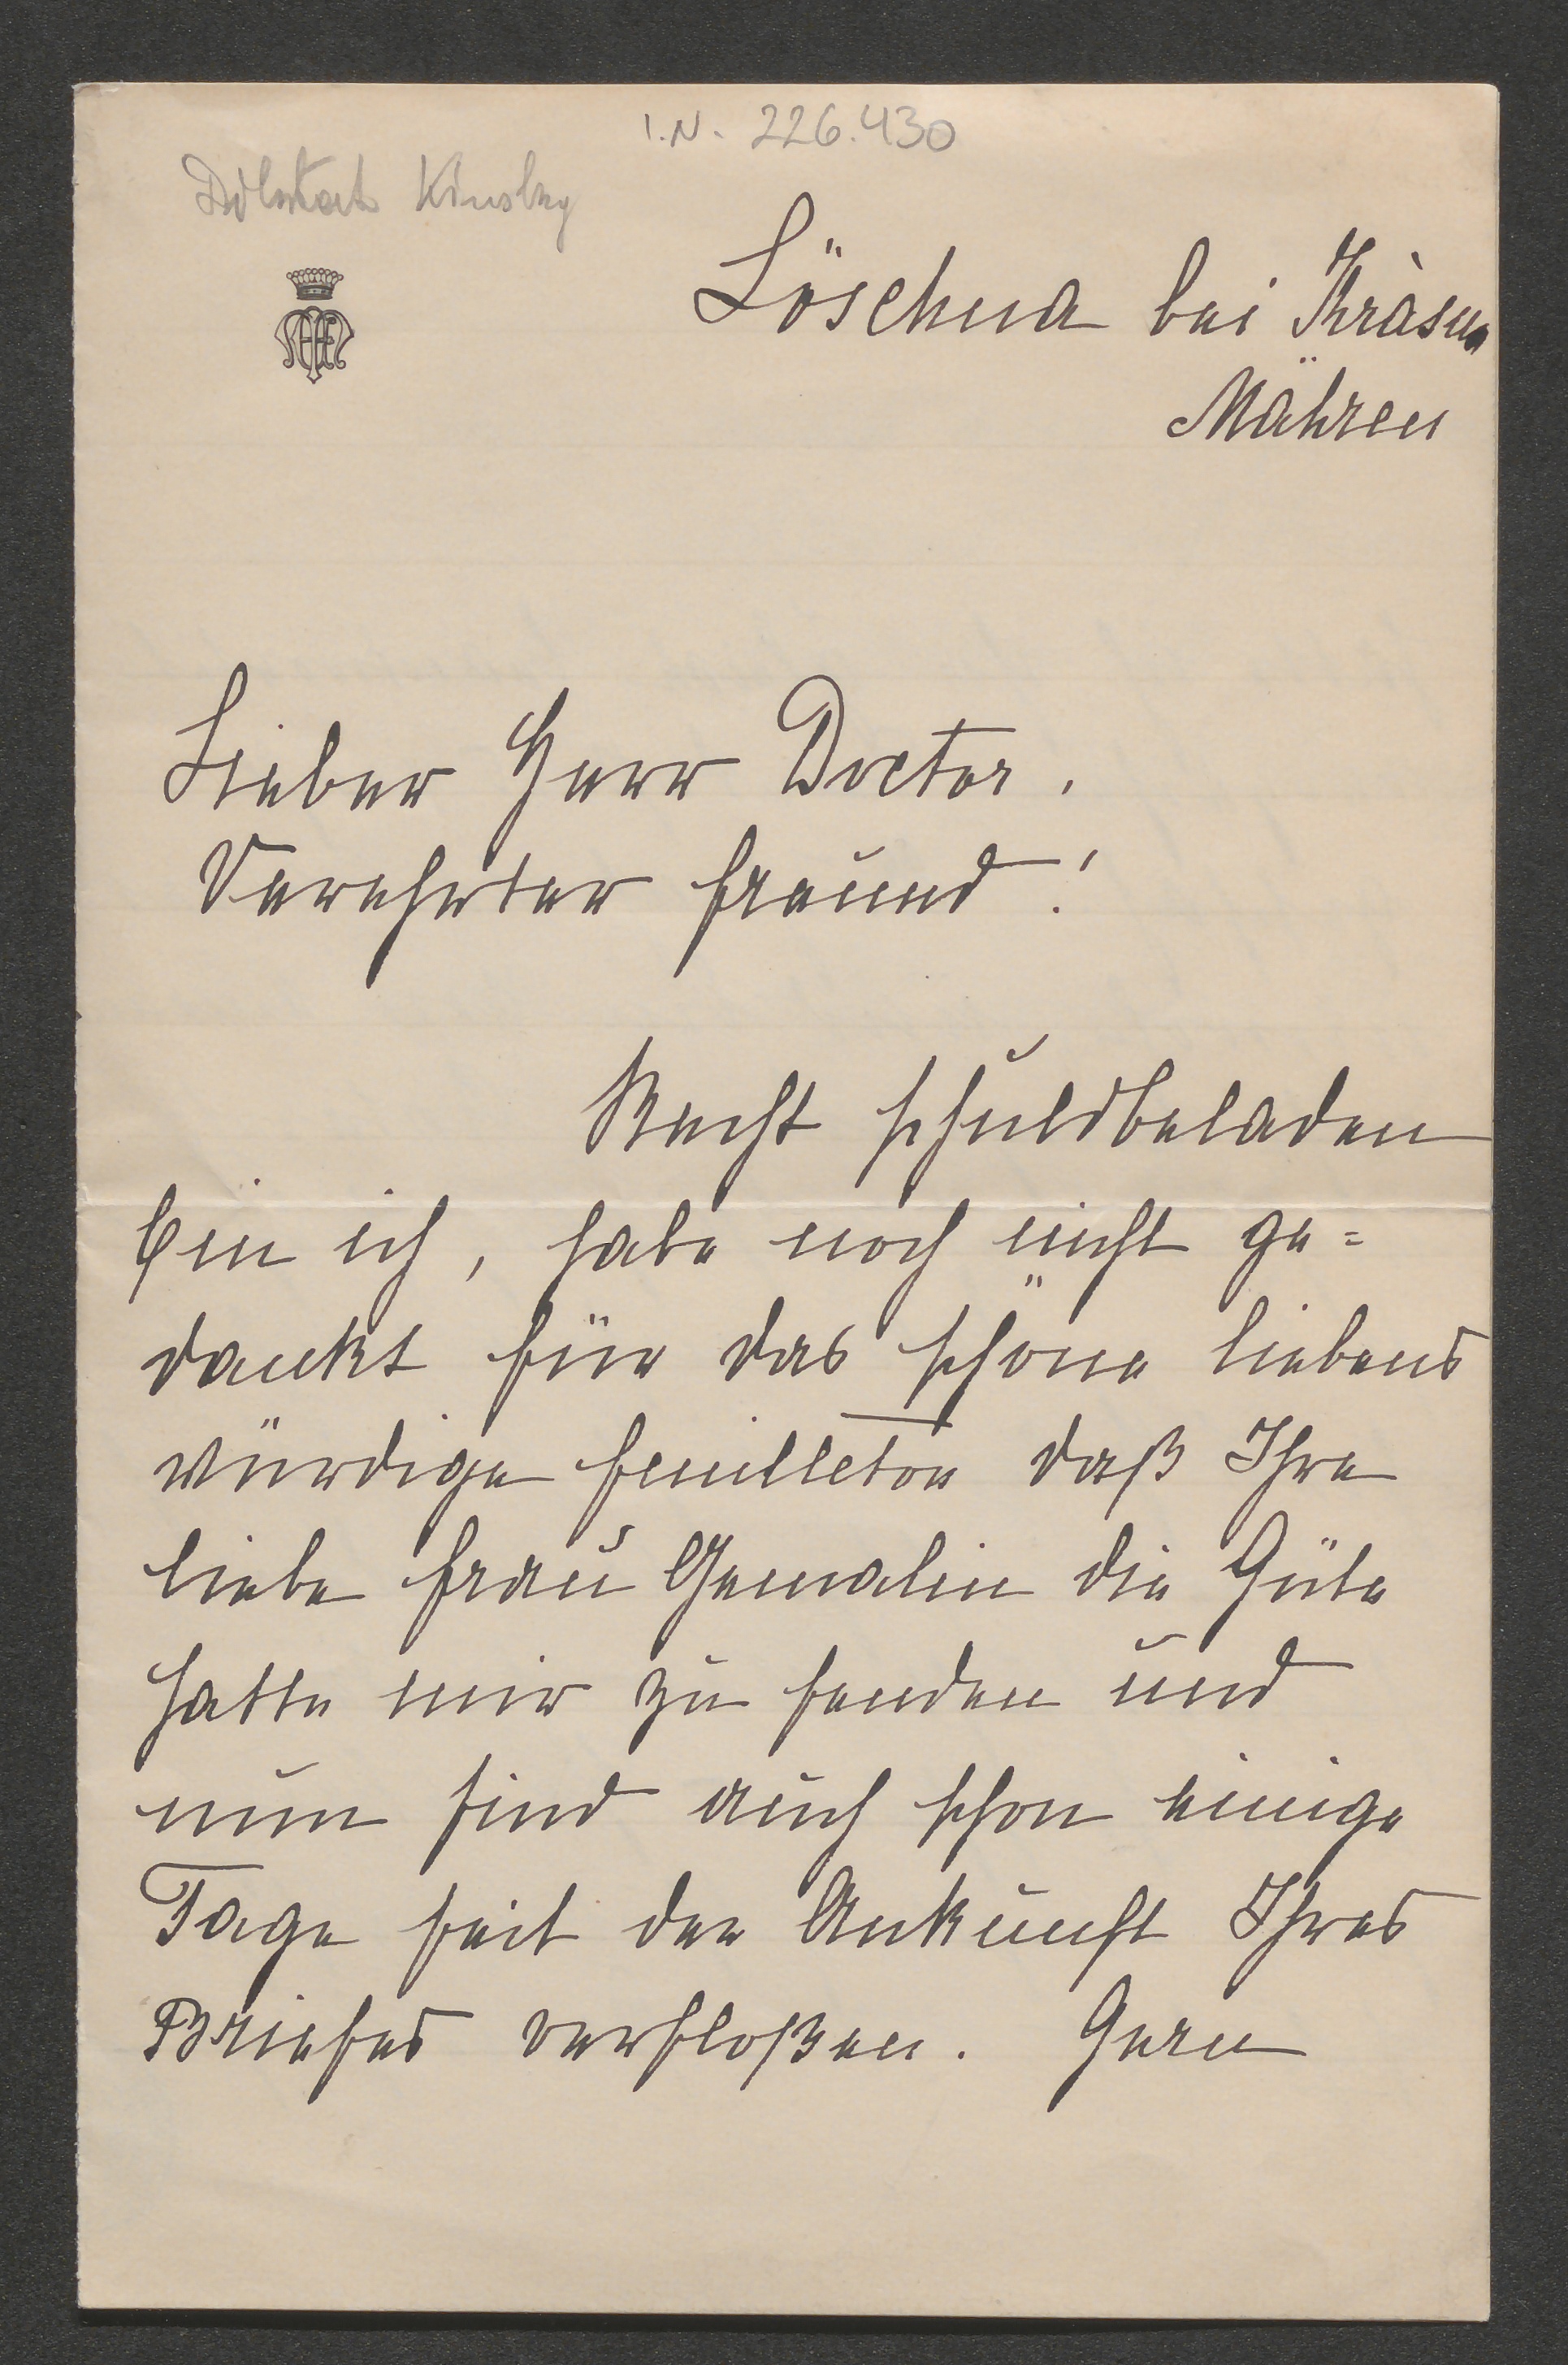 I.N. 226.430
Löschna bei Kràsna
Mähren
Lieber Herr Doctor,
Verehrter Freund!
Recht schuldbeladen
bin ich, habe noch nicht ge=
dankt für das schöne liebens
würdige Feuilleton daß Ihre
liebe Frau Gemalin die Güte
hatte mir zu senden und
nun sind auch schon einige
Tage seit der Ankunft Ihres
Briefes verfloßen. Gern